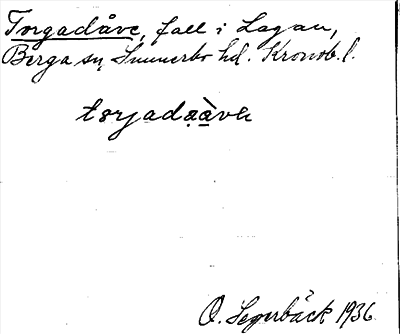 Torgadåve, fall i Lagan,
Berga sn, Sunnerbo hd. Kronob. l.
torjadaàva
O. Segerbäck 1936